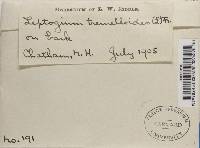 HERBARIUM OF L. W. RIDDLE
Leptogium tremelloides (L) Fr.
on bark
Chatham, N.H. July 1905
No. 191